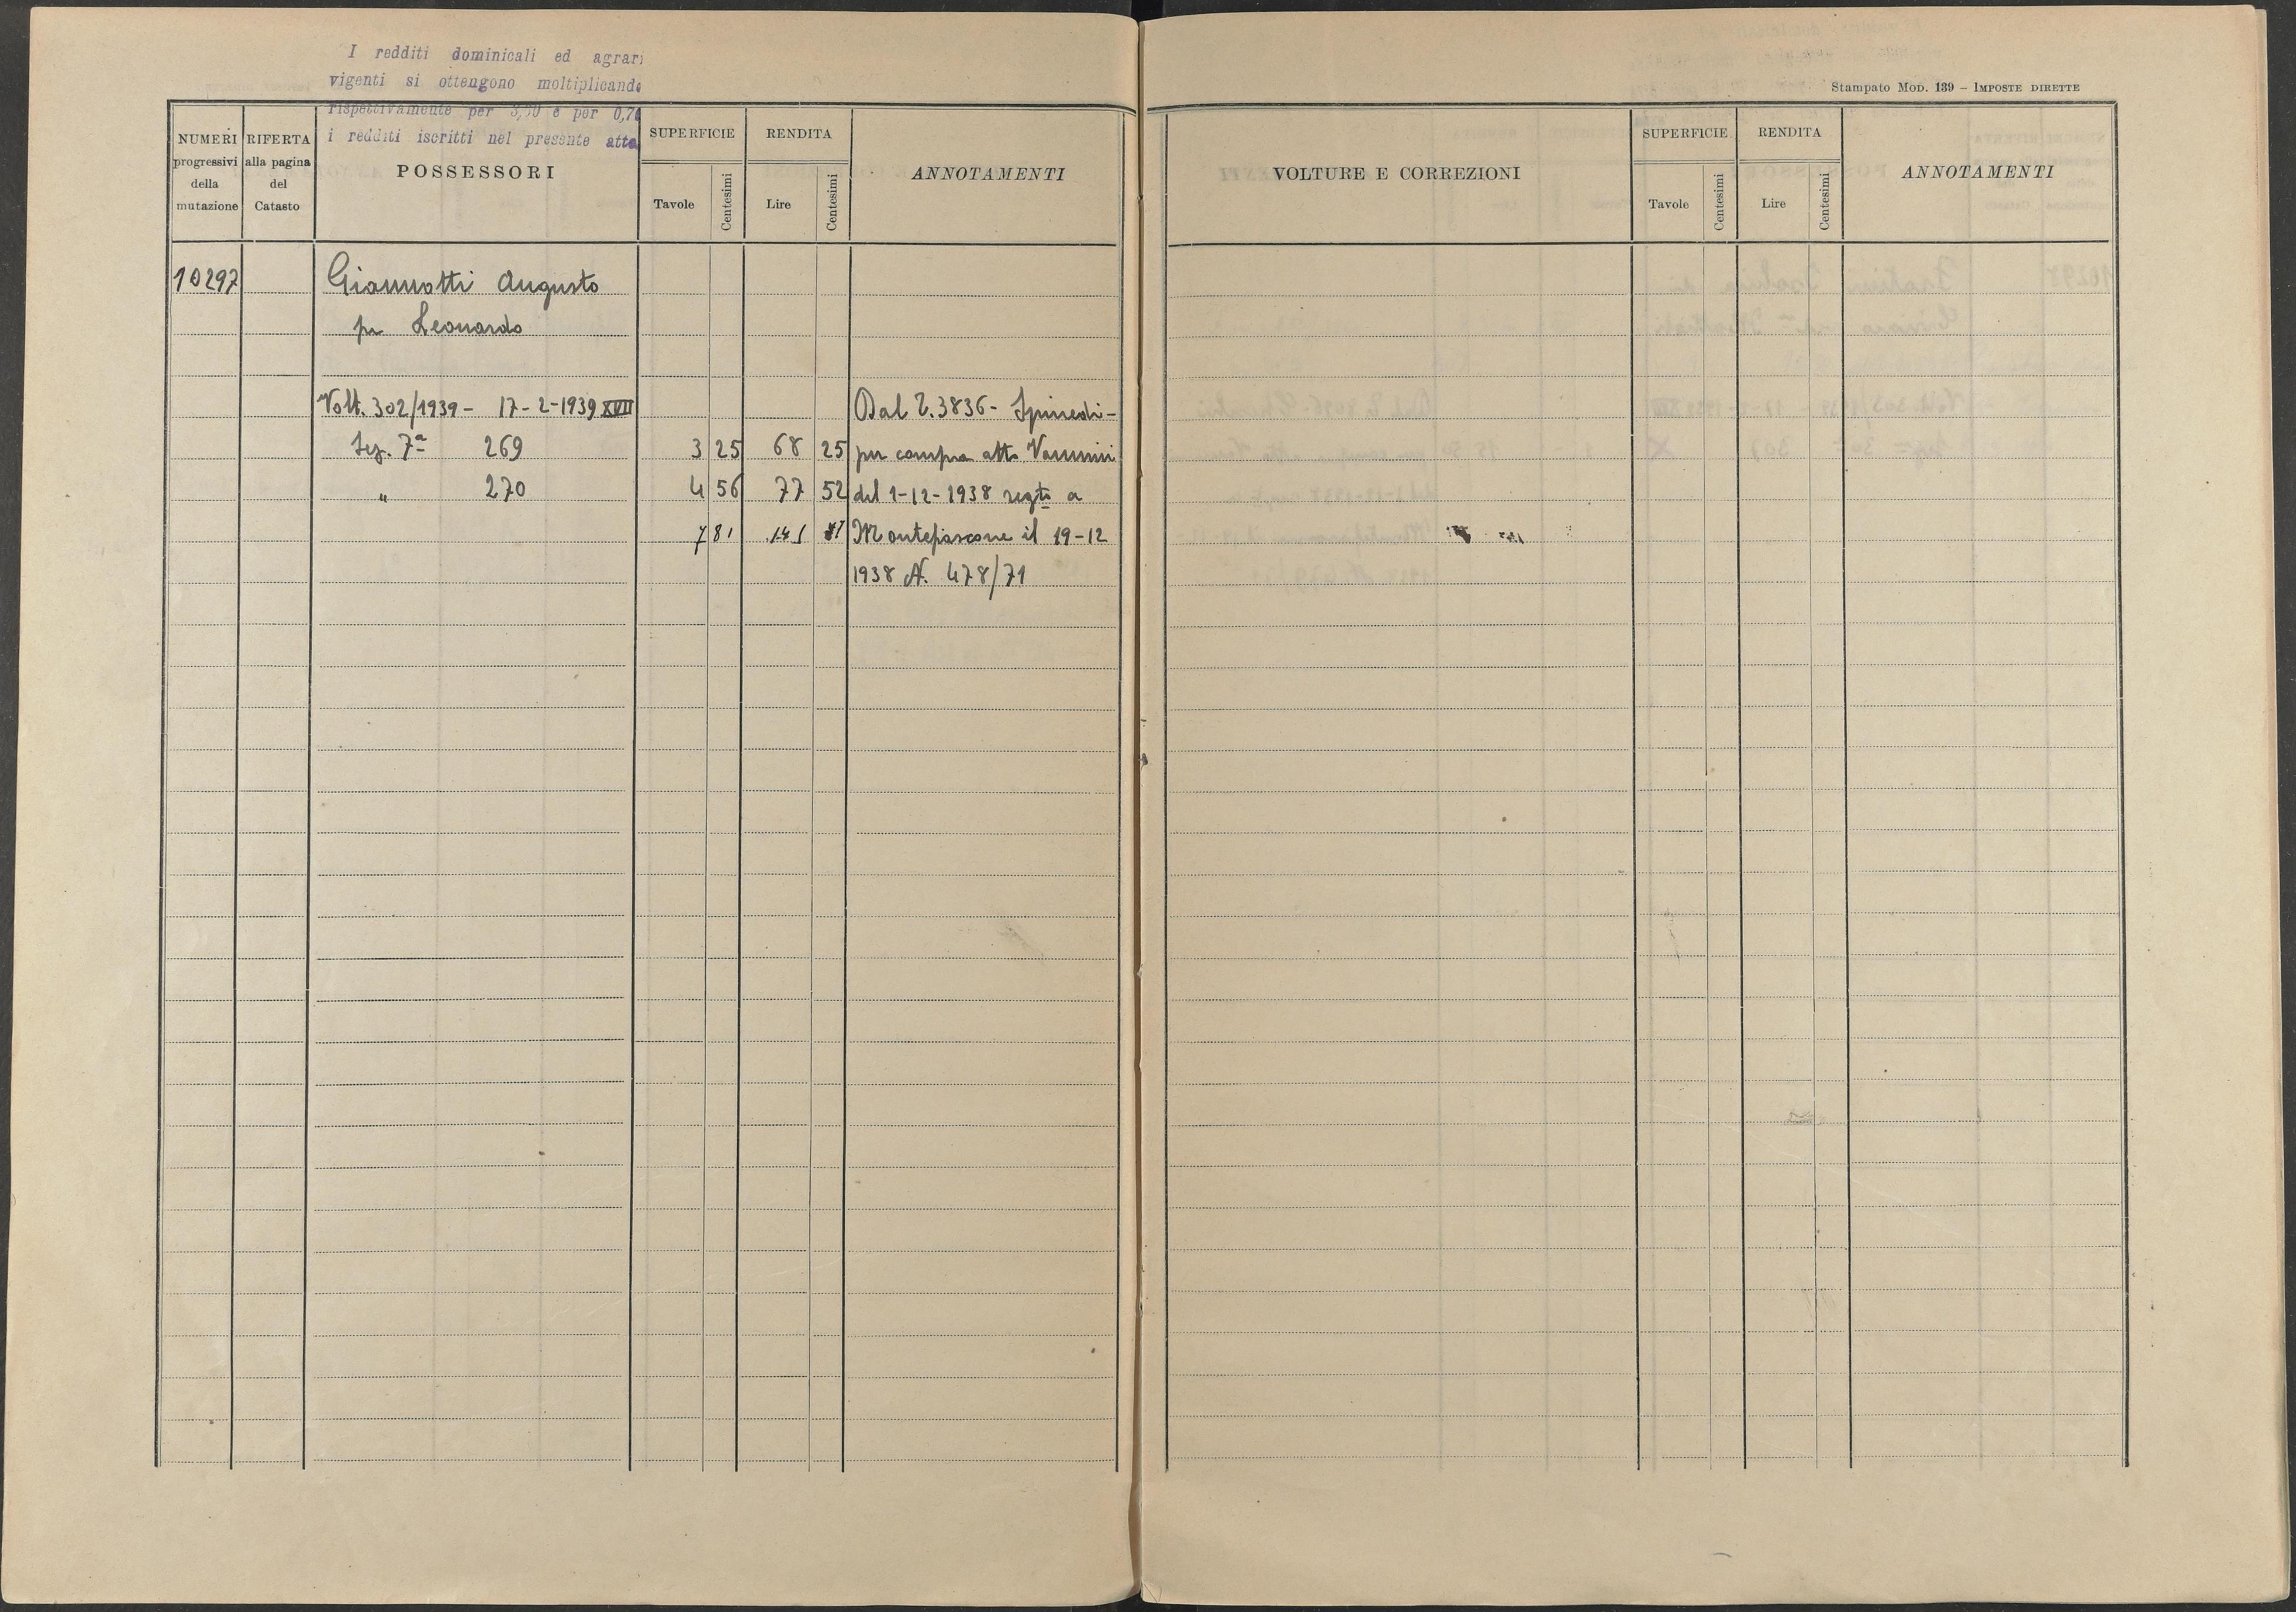 I redditi dominicali ed agrari
vigenti si ottengono moltiplicando
rispettivamente per e per 0,70
i redditi iscritti nel presente atto
NUMERI progressivi della mutazione
RIFERTA alla pagina del Catasto
POSSESSORI
SUPERFICIE
Tavole
Centesimi
RENDITA
Lire
Centesimi
ANNOTAMENTI
10297 Giannotti Augusto
fu Leonardo
Volt. 302/1939 - 17-2-1939 XVII Dal T. 3836 - Spinedi-
Sez. 7ª 269 3 25 68 25 per compra atto Vannini
" 270 4 56 77 52 del 1-12-1938 regto a
7 81 145 Montefiascone il 19-12
1938 N. 478/71
Stampato Mod. 139 – Imposte dirette
VOLTURE E CORREZIONI
SUPERFICIE
Tavole
Centesimi
RENDITA
Lire
Centesimi
ANNOTAMENTI